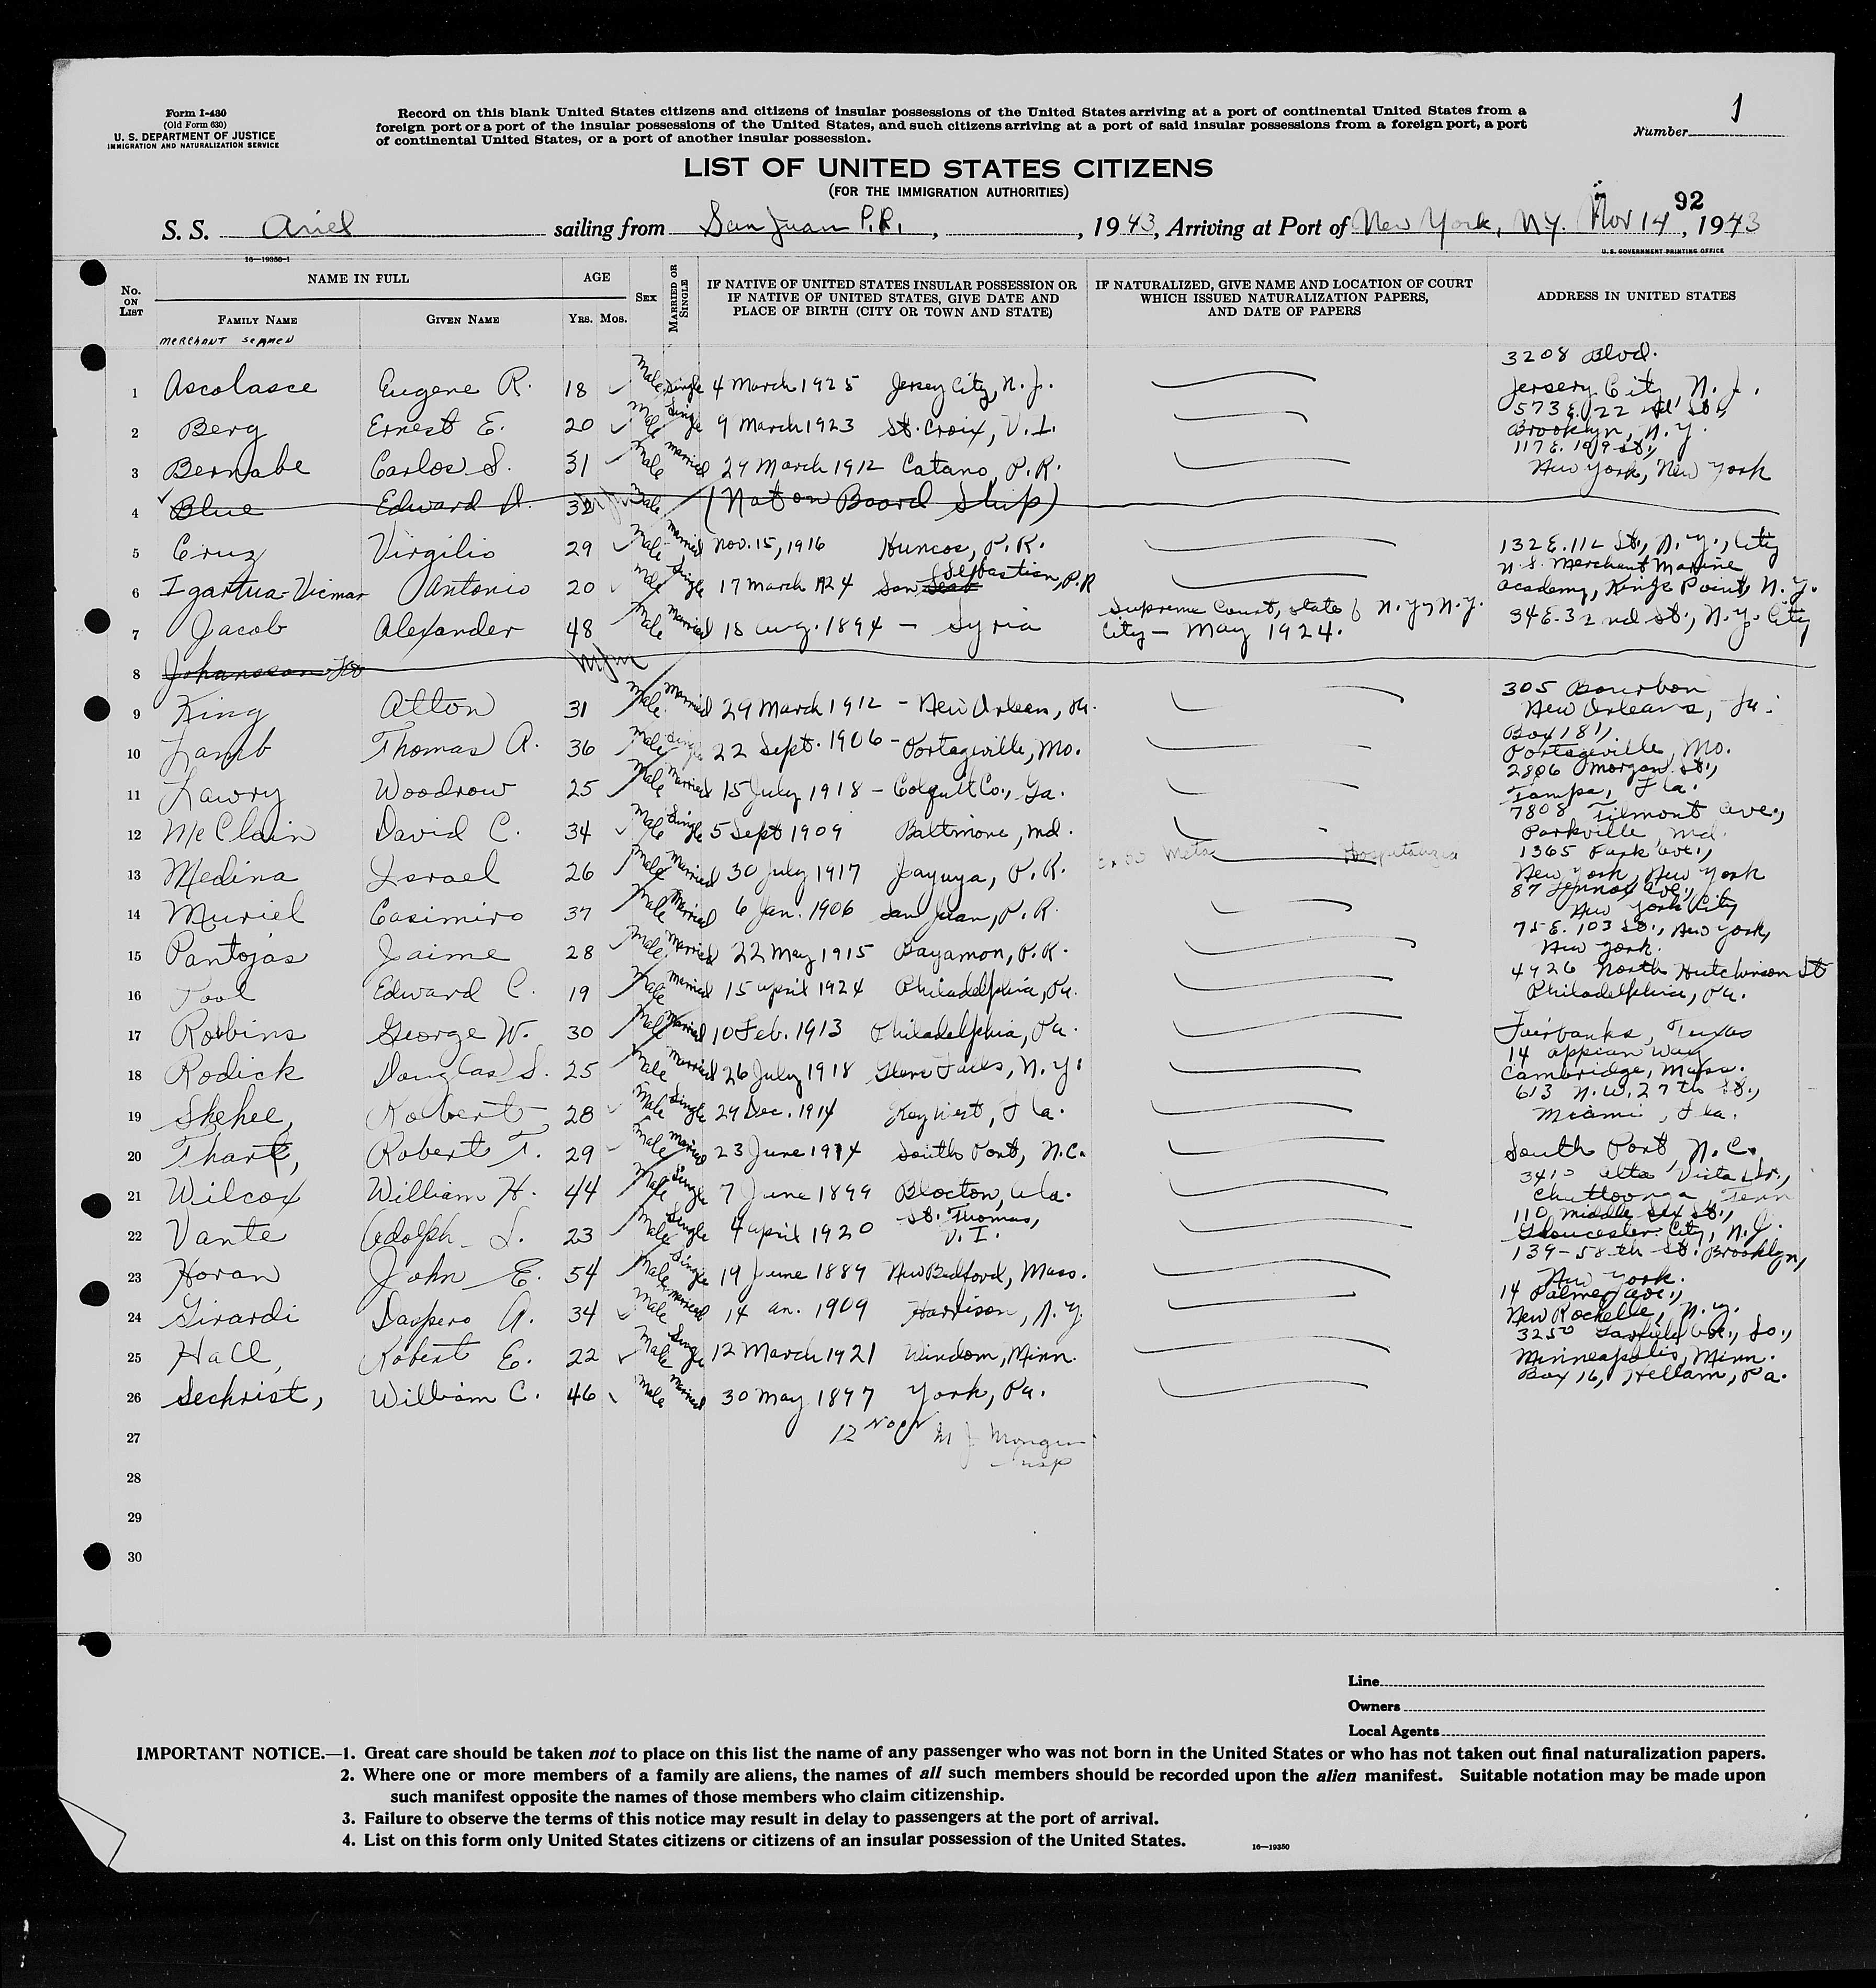 Form I-430
(Old Form 630)
U. S. DEPARTMENT OF JUSTICE
IMMIGRATION AND NATURALIZATION SERVICE
Record on this blank United States citizens and citizens of insular possessions of the United States arriving at a port of continental United States from a
foreign port or a port of the insular possessions of the United States, and such citizens arriving at a port of said insular possessions from a foreign port, a port
of continental United States, or a port of another insular possession.
Number 1
LIST OF UNITED STATES CITIZENS
(FOR THE IMMIGRATION AUTHORITIES)
92
S. S. Ariel sailing from San Juan P.R., , 1943, Arriving at Port of New York, N.Y. Nov 14, 1943
16—19350-1
U. S. GOVERNMENT PRINTING OFFICE
No. ON LIST
NAME IN FULL
FAMILY NAME
GIVEN NAME
AGE
YRS. MOS.
SEX
MARRIED OR SINGLE
IF NATIVE OF UNITED STATES INSULAR POSSESSION OR
IF NATIVE OF UNITED STATES, GIVE DATE AND
PLACE OF BIRTH (CITY OR TOWN AND STATE)
IF NATURALIZED, GIVE NAME AND LOCATION OF COURT
WHICH ISSUED NATURALIZATION PAPERS,
AND DATE OF PAPERS
ADDRESS IN UNITED STATES
MERCHANT SEAMEN
1 Ascolasce Eugene R. 18 Male Single 4 March 1925 Jersey City, N. J. 3208 Blvd. Jersery City, N. J.
2 Berg Ernest E. 20 Male Single 9 March 1923 St. Croix, V. I. 573 E. 22 nd St., Brooklyn, N. Y.
3 Bernabe Carlos S. 31 Male Married 29 March 1912 Catano, P. R. 117 E. 109 St., New York, New York
4 Blue Edward A. 32 Male (Not on Board Ship)
5 Cruz Virgilio 29 Male Married Nov. 15, 1916 Huncos, P. R. 132 E. 112 St., N. Y., City
6 Igartua-Vicmar Antonio 20 Male Single 17 March 1924 San Sebastian, P.R U. S. Merchant Marine Academy, Kings Point, N. Y.
7 Jacob Alexander 48 Male Married 15 Aug. 1894 - Syria Supreme Court, State of N. Y, N. Y. City - May 1924. 34 E. 32 nd St., N. Y. City
8 Johansson
9 King Alton 31 Male Married 29 March 1912 - New Orleans, La. 305 Bourbon New Orleans, La.
10 Lamb Thomas A. 36 Male Single 22 Sept. 1906 - Portageville, Mo. Box 181, Portageville, Mo.
11 Lawry Woodrow 25 Male Married 15 July 1918 - Colquitt Co., Ga. 2806 Morgan St., Tampa, Fla.
12 McClain David C. 34 Male Single 5 Sept 1909 Baltimore, Md. 7808 Tilmont Ave., Parkville, Md.
13 Medina Israel 26 Male Married 30 July 1917 Jayuya, P. R. Ex SS Meta Hospitalized 1365 Park Ave., New York, New York
14 Muriel Casimiro 37 Male Married 6 Jan. 1906 San Juan, P. R. 87 Lennox Ave., New York City
15 Pantojas Jaime 28 Male Married 22 May 1915 Bayamon, P. R. 75 E. 103 St., New York, New York.
16 Pool Edward C. 19 Male Married 15 April 1924 Philadelphia, Pa. 4926 North Hutchinson St Philadelphia, Pa.
17 Robbins George W. 30 Male Married 10 Feb. 1913 Philadelphia, Pa. Fairbanks, Texas
18 Rodick Douglas S. 25 Male Married 26 July 1918 Glens Falls, N. Y. 14 Appian Way Cambridge, Mass.
19 Shehee, Robert 28 Male Single 29 Dec. 1914 Key West, Fla. 613 N. W. 27 th St., Miami, Fla.
20 Tharp, Robert T. 29 Male Married 23 June 1914 South Port, N.C. South Port, N. C.
21 Wilcox William H. 44 Male Single 7 June 1899 Blocton, Ala. 3410 Alta Vista Dr., Chattoonga, Tenn
22 Vante Adolph L. 23 Male Single 4 April 1920 St. Thomas, V. I. 110 Middle Sex St., Gloucester City, N. J.
23 Horan John E. 54 Male Single 19 June 1889 New Bedford, Mass. 139 - 58 th St. Brooklyn, New York.
24 Girardi Daspero A. 34 Male Married 14 an. 1909 Harrison, N. Y. 14 Palmer Ave., New Rochelle, N. Y.
25 Hall, Robert E. 22 Male Single 12 March 1921 Windom, Minn. 3250 Garfield Ave., So., Minneapolis, Minn.
26 Sechrist, William C. 46 Male Married 30 May 1897 York, Pa. Box 16, Hellam, Pa.
27 12 Noon
Insp
28
29
30
Line
Owners
Local Agents
IMPORTANT NOTICE.—1. Great care should be taken not to place on this list the name of any passenger who was not born in the United States or who has not taken out final naturalization papers.
2. Where one or more members of a family are aliens, the names of all such members should be recorded upon the alien manifest. Suitable notation may be made upon
such manifest opposite the names of those members who claim citizenship.
3. Failure to observe the terms of this notice may result in delay to passengers at the port of arrival.
4. List on this form only United States citizens or citizens of an insular possession of the United States.
16—19350